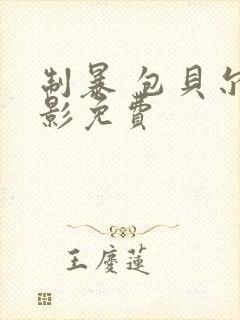 制暴 包貝尔
影免費
王慶蓮